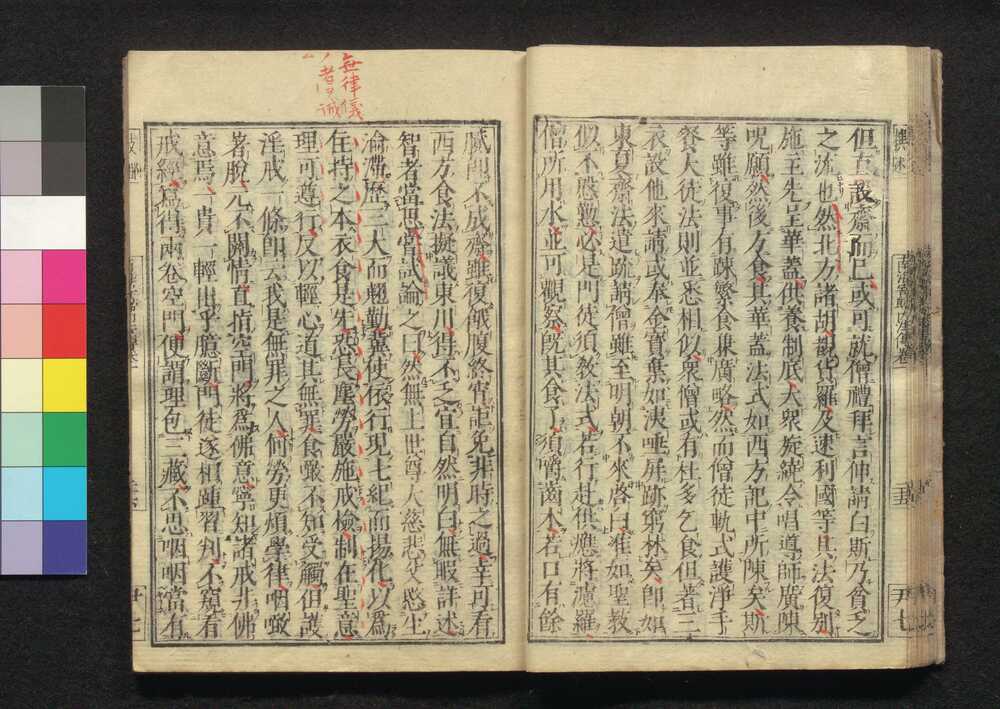 但直設齋而已或可就僧禮拜言伸請白斯乃貧之
之流也然北方諸胡覩貨羅及速利國等其法復別
施主先呈華蓋供養制底大衆旋繞令唱導師廣陳
呪願然後方食其華蓋法式如西方記中所陳矣斯
等雖復事有疎繁食兼廣略然而僧徒軌式護淨手
餐大徒法則並悉相似衆僧或有杜多乞食但著三
衣設他來請或奉金寶棄如洟唾屏跡窮林矣即如
東夏齋法遣疏請僧雖至明朝不來啓白准如聖教
似不慇懃必是門徒須教法式若行赴供應將濾羅
僧所用水並可觀察既其食了須嚼齒木若口有餘
尹七
無律儀
ノ者ヲ誡
膩即不成齋雖復餓腹終宵詎免非時之過幸可看
西方食法擬議東川得不之宜自然明白無暇詳述
智者當思嘗試論之曰然無上世尊大慈悲父愍生
淪滯歷三大而翹勤冀使依行現七紀而揚化以爲
住持之本衣食是先恐長塵勞嚴施戒檢制在聖意
理可遵行反以輕心道其無罪食噉不知受觸但護
淫戒一條即云我是無罪之人何勞更煩學律咽噉
著脫元不關情直指空門將爲佛意寧知諸戒非佛
意焉一貴一輕出乎臆斷門徒遂相踵習判不窺看
戒經寫得兩卷空門便謂理包三藏不思咽咽當有